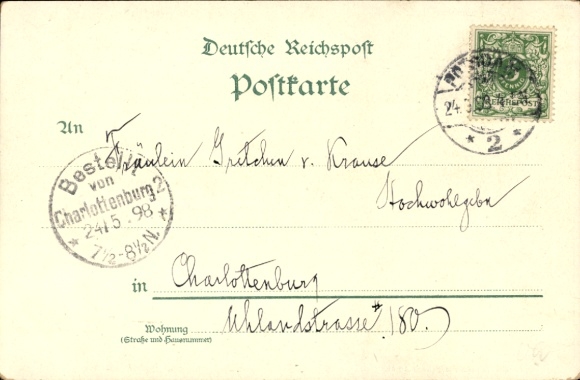 Deutsche Reichspost
Postkarte
5
REICHSPOST
POTSDAM
24.5.98
* 2 *
An Fräulein Gretchen v. Krause
Hochwohlgebn
Bestellt
von
Charlottenburg 2
24/5. 98
* 7½-8½N. *
in Charlottenburg
Uhlandstrasse # 180.
Wohnung
(Straße und Hausnummer)